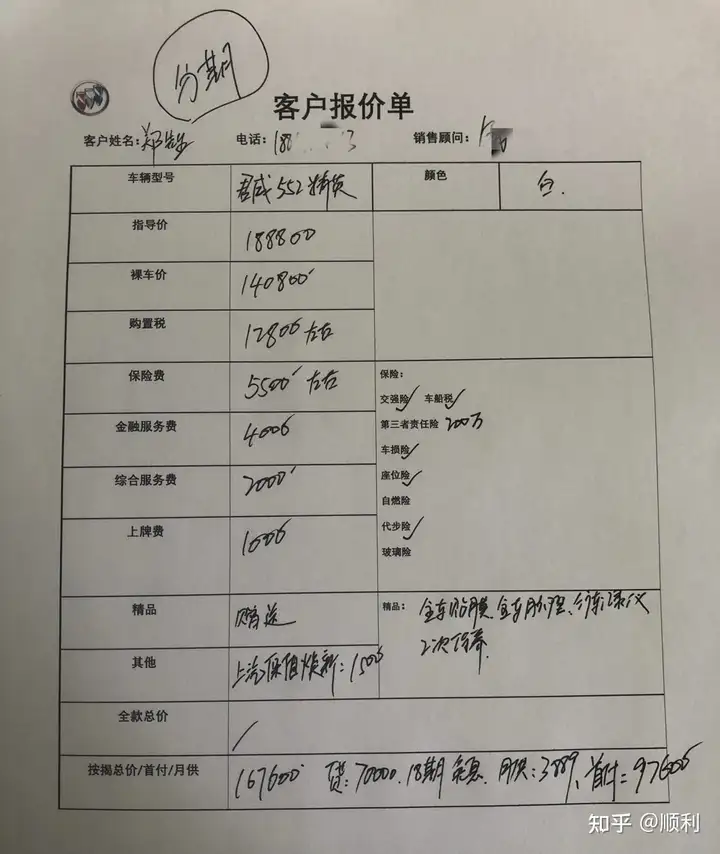 分期
客户报价单
客户姓名: 电话: 18 3 销售顾问:
车辆型号 君威 552 精英 颜色 白.
指导价 188800
裸车价 140800
购置税 12800 左右
保险费 5500 左右 保险:
交强险✓ 车船税✓
金融服务费 4000 第三者责任险 200万
车损险✓
综合服务费 2000 座位险✓
自燃险
上牌费 1000 代步险✓
玻璃险
精品 赠送 精品: 全车贴膜、全车脚垫、行车记录仪
2次保养.
其他 上汽保租焕新: 1500
全款总价 /
按揭总价/首付/月供 167600 贷: 70000. 18期 免息. 月供: 3889、首付=97600
知乎 @顺利